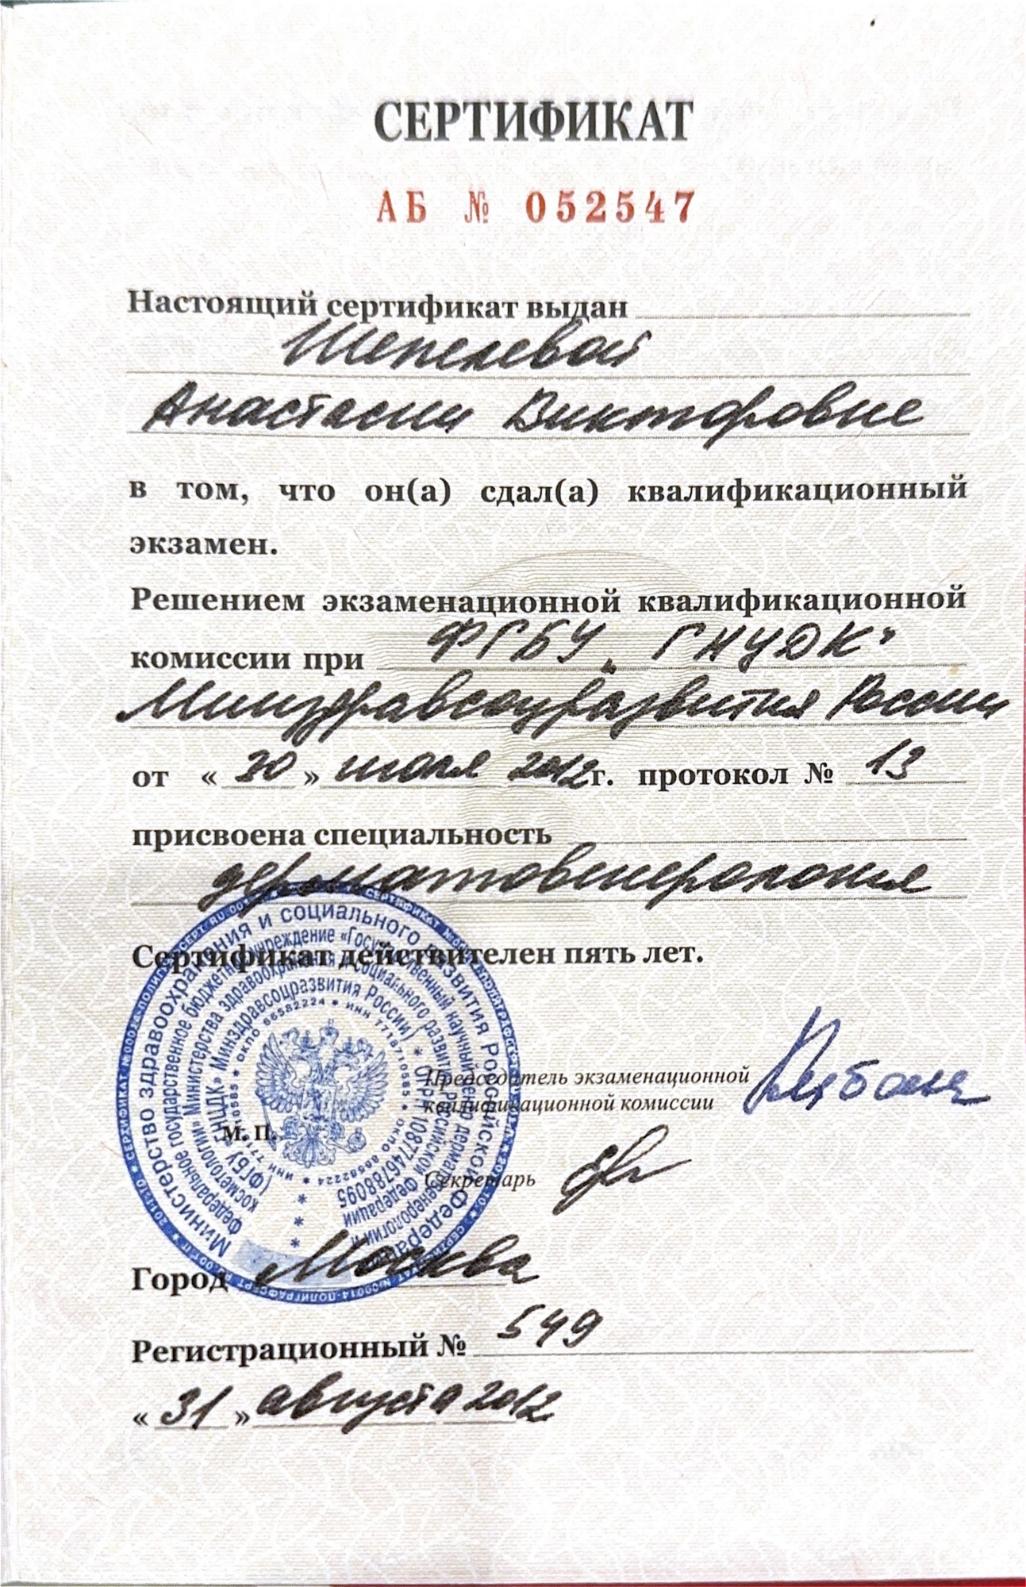 СЕРТИФИКАТ
АБ № 052547
Настоящий сертификат выдан
Шепелевой
Анастасии Викторовне
в том, что он(а) сдал(а) квалификационный
экзамен.
Решением экзаменационной квалификационной
комиссии при ФГБУ „ГНЦДК"
Минздравсоцразвития России
от « 30 » июля 2012г. протокол № 13
присвоена специальность
дерматовенерология
Сертификат действителен пять лет.
Председатель экзаменационной
квалификационной комиссии
М. П.
Секретарь
Город Москва
Регистрационный № 549
« 31 » августа 2012
Министерство здравоохранения и социального развития Российской Федерации
Федеральное государственное бюджетное учреждение «Государственный научный центр дерматовенерологии и
косметологии» Министерства здравоохранения и социального развития Российской Федерации
(ФГБУ «ГНЦДК» Минздравсоцразвития России) * ОГРН 1087746788095